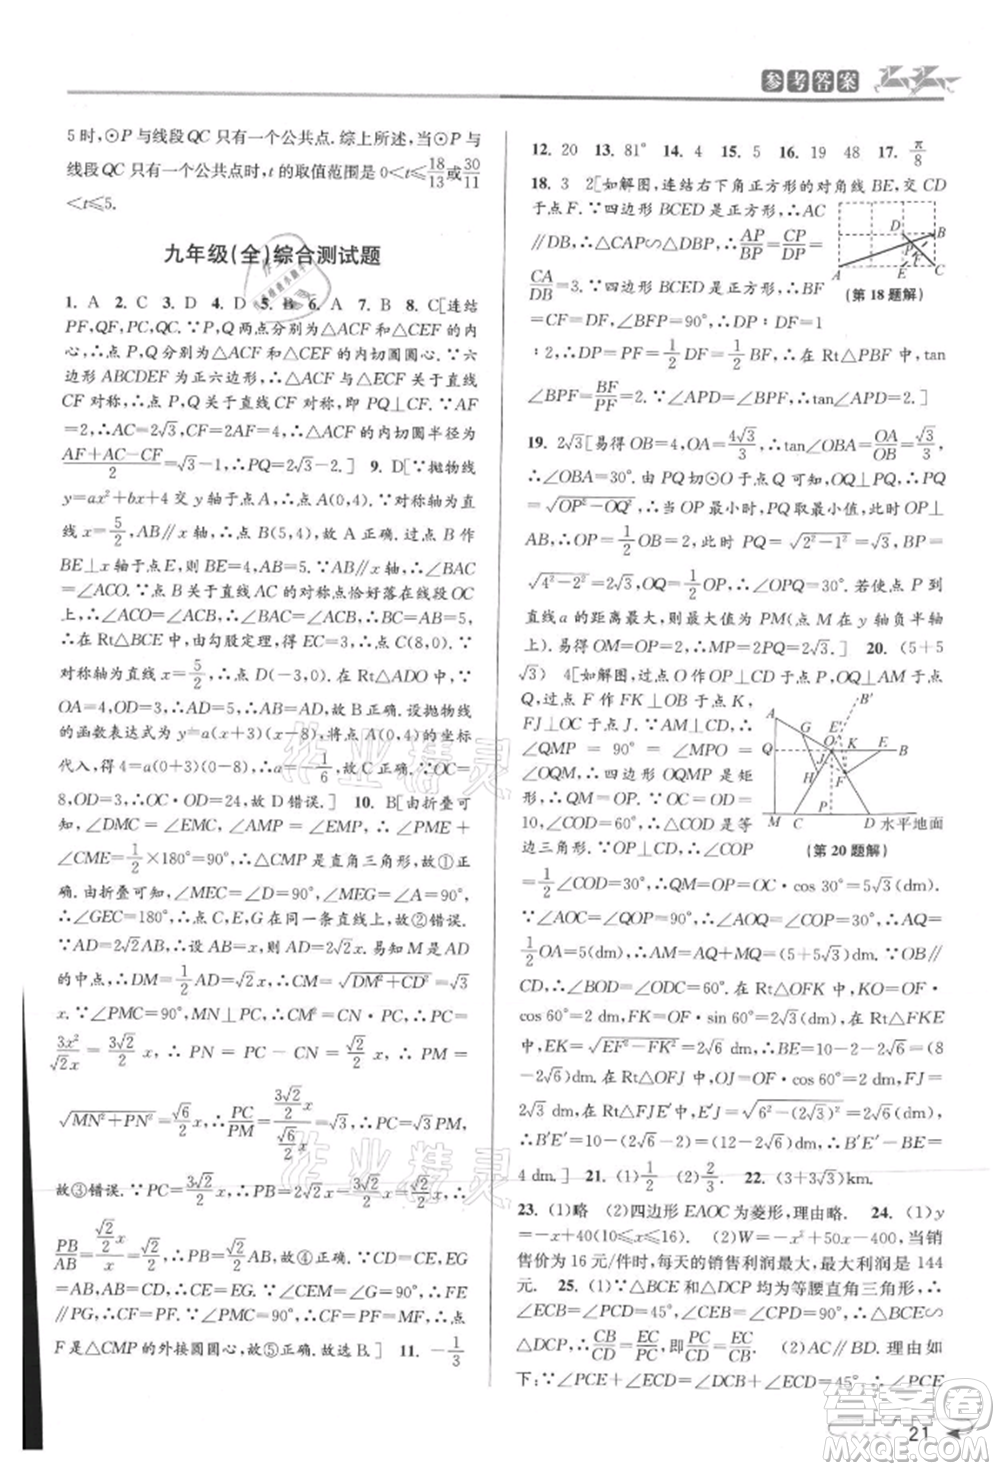 参考答案
5 时,⊙P 与线段 QC 只有一个公共点. 综上所述,当⊙P 与
线段 QC 只有一个公共点时,t 的取值范围是 0<t≤18/13或30/11
<t≤5.
九年级(全)综合测试题
1. A 2. C 3. D 4. D 5. B 6. A 7. B 8. C[连结
PF,QF,PC,QC. ∵P,Q 两点分别为△ACF 和△CEF 的内
心,∴点 P,Q 分别为△ACF 和△CEF 的内切圆圆心. ∵六
边形 ABCDEF 为正六边形,∴△ACF 与△CEF 关于直线
CF 对称,∴点 P,Q 关于直线 CF 对称,即 PQ⊥CF. ∵AF
=2,∴AC=2√3,CF=2AF=4,∴△ACF 的内切圆半径为
(AF+AC-CF)/2=√3-1,∴PQ=2√3-2. ] 9. D[∵抛物线
y=ax²+bx+4 交 y 轴于点 A,∴点 A(0,4). ∵对称轴为直
线 x=5/2,AB∥x 轴,∴点 B(5,4),故 A 正确. 过点 B 作
BE⊥x 轴于点 E,则 BE=4,AB=5. ∵AB∥x 轴,∴∠BAC
=∠ACO. ∵点 B 关于直线 AC 的对称点恰好落在线段 OC
上,∴∠ACO=∠ACB,∴∠BAC=∠ACB,∴BC=AB=5,
∴在 Rt△BCE 中,由勾股定理,得 EC=3,∴C(8,0). ∵
对称轴为直线 x=5/2,∴D(-3,0). ∵在 Rt△ADO 中,
OA=4,OD=3,∴AD=5,∴AB=AD,故 B 正确. 设抛物线的
函数表达式为 y=a(x+3)(x-8),将点 A(0,4)的坐标
代入,得 4=a(0+3)(0-8),∴a=-1/6,故 C 正确. ∵OC=
8,OD=3,∴OC·OD=24,故 D 错误. ] 10. B[由折叠可
知,∠DMC = ∠EMC,∠AMP = ∠EMP,∴ ∠PME +
∠CME=1/2×180°=90°,∴△CMP 是直角三角形,故①正
确. 由折叠可知,∠MEC=∠D=90°,∠MEG=∠A=90°,
∴∠GEC=180°,∴点 C,E,G 在同一条直线上,故②错误.
∵AD=2√2AB,∴设 AB=x,则 AD=2√2x. 易知 M 为 AD
的中点,∴DM=1/2AD=√2x,∴CM=√(DM²+CD²)=√3
x. ∵∠PMC=90°,MN⊥PC,∴CM²=CN·CP,∴CP=
3x²/(√2x)=(3√2/2)x,∴PN=CP-CN=(√2/2)x,∴PM=
√(MN²+PN²)=(√6/2)x,∴PC/PM=((3√2/2)x)/((√6/2)x)=√3,∴PC=√3PM,
故③错误. ∵PC=(3√2/2)x,∴PB=2√2x-(3√2/2)x=(√2/2)x,∴
PB/AB=((√2/2)x)/x,∴PB=(√2/2)AB,故④正确. ∵CD=CE,EG
=AB,AB=CD,∴CE=EG. ∵∠CEM=∠G=90°,∴FE
∥PG,∴CF=PF. ∵∠PMC=90°,∴CF=PF=MF,∴点
F 是△CMP 的外接圆圆心,故⑤正确. 故选 B. ] 11. -1/3
12. 20 13. 81° 14. 4 15. 5 16. 19 48 17. π/8
18. 3 2[如解图,连结右下角正方形的对角线 BE,交 CD
于点 F. ∵四边形 BCED 是正方形,∴AC
∥DB,∴△CAP∽△DBP,∴AP/BP=CP/DP=
CA/DB=3. ∵四边形 BCED 是正方形,∴BF
(第 18 题解)
=DF=1/2CD,∠BFP=90°,∴DP∶DC=1
∶2,∴DP=PF=1/2DF=1/2BF. ∴在 Rt△PBF 中,tan
∠BPF=BF/PF=2. ∵∠APD=∠BPF,∴tan∠APD=2. ]
19. 2√3[易得 OB=4,OA=4√3/3,∴tan∠OBA=OA/OB=√3/3,
∴∠OBA=30°. 由 PQ 切⊙O 于点 Q,可知 OQ⊥PQ,∴PQ
=√(OP²-OQ²),∴当 OP 最小时,PQ 取最小值,此时 OP⊥
AB,∴OP=1/2OB=2. 此时 PQ=√(2²-1²)=√3,∴BP=
√(4²-2²)=2√3,∠BOP=90°-30°=60°. 若使点 P 到
直线 a 的距离最大,则最大值为 PM(点 M 在 y 轴负半轴
上). 易得 OM=OP=2,∴∠MPO=30°,∴PM=2PQ=2√3. ] 20. (5+5
√3) 4[如解图,过点 O 作 OP⊥CD 于点 P,OQ⊥AM 于点
Q,过点 F 作 FK⊥OB 于点 K,
FJ⊥OC 于点 J. ∵∠M =
∠QMP = ∠MPO =
∠OQM=90°,∴四边形 OQMP 是矩
形,∴QM = OP. ∵ OC = OD =
10,∠COD=60°,∴△COD 是等
边三角形. ∵OP⊥CD,∴∠COP=
水平地面
(第 20 题解)
1/2∠COD=30°,∴QM=OP=OC·cos 30°=5√3(dm).
∵∠AOC=∠QOP=90°,∴∠AOQ=∠COP=30°,∴AQ=
1/2OA=5(dm),∴AM=AQ+QM=(5+5√3)dm. ∵OB∥
CD,∴∠BOD=∠ODC=60°. 在 Rt△OFK 中,KO=OF·
cos 60°=2(dm),FK=OF·sin 60°=2√3(dm),在 Rt△FKE
中,EK=√(EF²-FK²)=2√6(dm),∴BE=10-2-2√6=(8
-2√6)(dm). 在 Rt△OFJ 中,OJ=OF·cos 60°=2(dm),FJ=
2√3(dm). 在 Rt△FJE′中,E′J=√(6²-(2√3)²)=2√6(dm),
∴B′E′=10-(2√6-2)=(12-2√6)(dm),∴B′E′-BE=
4 dm. ] 21. (1)1/2 (2)2/3 22. (3+3√3)km.
23. (1)略 (2)四边形 EAOC 为菱形,理由略. 24. (1)y
=-x+40(10≤x≤16). (2)W=-x²+50x-400,当销
售价为 16 元/件时,每天的销售利润最大,最大利润是 144
元. 25. (1)∵△BCE 和△DCP 均为等腰直角三角形,∴
∠ECB=∠PCD=45°,∠CEB=∠CPD=90°,∴△BCE∽
△DCP,∴CB/CD=EC/PC,∴PC/CD=EC/CB. (2)AC∥BD. 理由如
下:∵∠PCE+∠ECD=∠DCB+∠ECD=45°,∴∠PCE
21